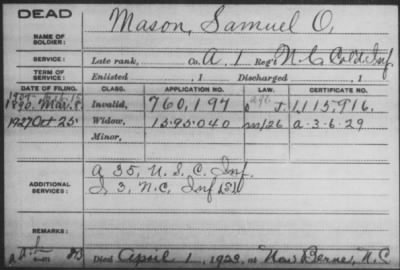 DEAD
Mason, Samuel O.
NAME OF SOLDIER:
SERVICE: Late rank, Co. A, 1 Reg't N.C. Col'd Inf.
TERM OF SERVICE: Enlisted , 1 Discharged , 1
DATE OF FILING. CLASS. APPLICATION NO. LAW. CERTIFICATE NO.
1890. Mar. 8. Invalid, 760,197 J 1,115,916.
1927 Oct 25 Widow, 1595040 m/26 a-3-6-29
Minor,
ADDITIONAL SERVICES:
A 35, U.S.C. Inf.
I 3, N.C. Inf
REMARKS:
Died April 1, 1923, at New Berne, N.C.